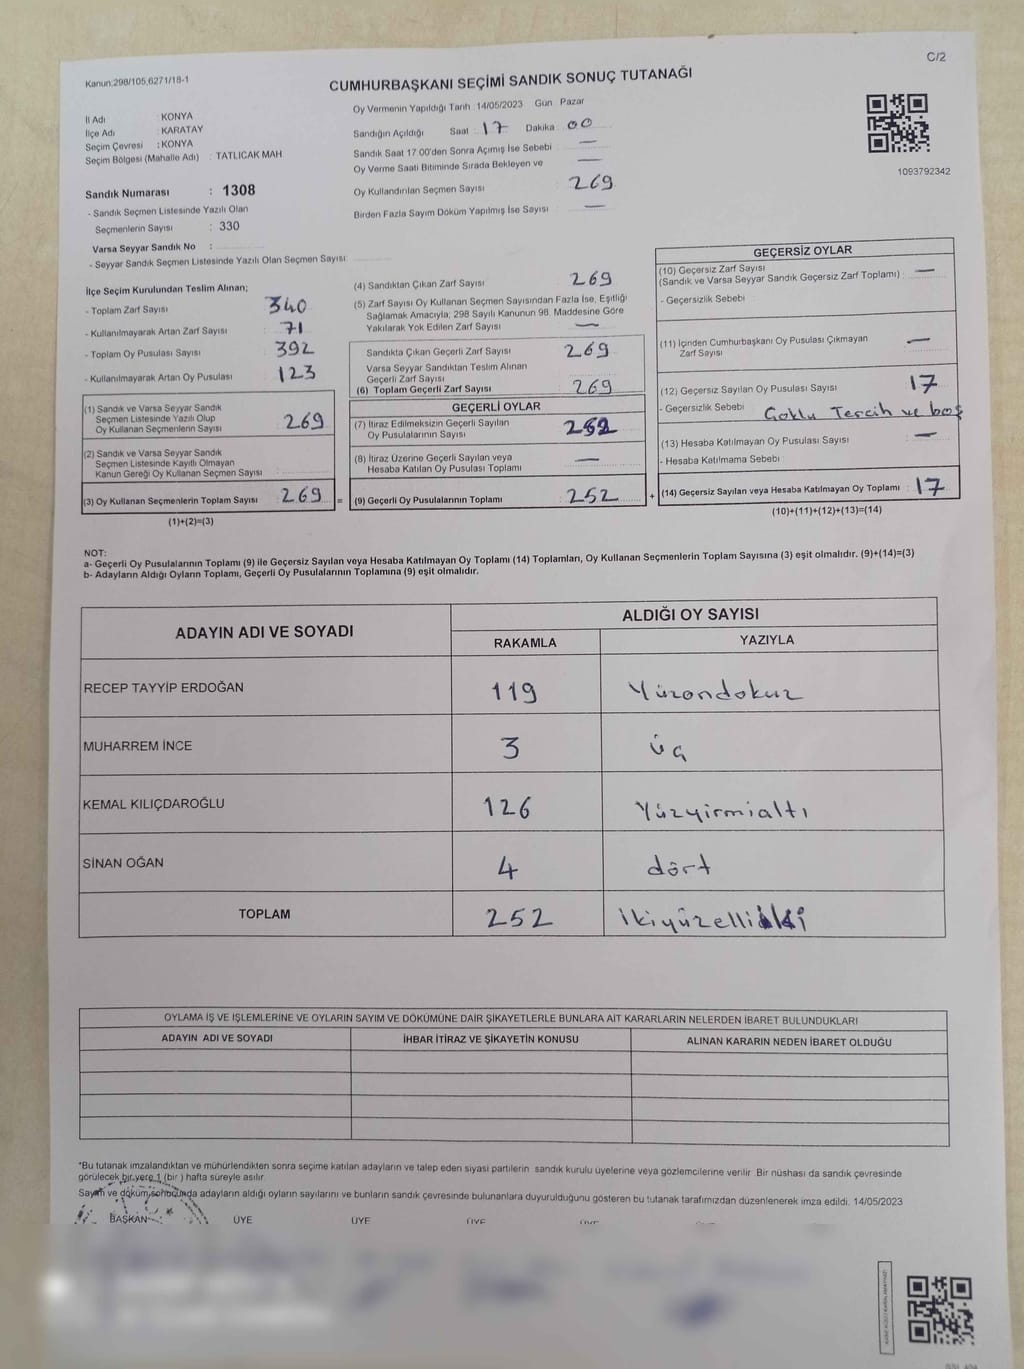 C/2
Kanun:298/105,6271/18-1
CUMHURBAŞKANI SEÇİMİ SANDIK SONUÇ TUTANAĞI
İl Adı : KONYA
İlçe Adı : KARATAY
Seçim Çevresi : KONYA
Seçim Bölgesi (Mahalle Adı) : TATLICAK MAH
Sandık Numarası : 1308
- Sandık Seçmen Listesinde Yazılı Olan
Seçmenlerin Sayısı : 330
Varsa Seyyar Sandık No :
- Seyyar Sandık Seçmen Listesinde Yazılı Olan Seçmen Sayısı:
Oy Vermenin Yapıldığı Tarih :14/05/2023 Gün Pazar
Sandığın Açıldığı Saat 17 Dakika 00
Sandık Saat 17:00'den Sonra Açımış İse Sebebi —
Oy Verme Saati Bitiminde Sırada Bekleyen ve —
Oy Kullandırılan Seçmen Sayısı 269
Birden Fazla Sayım Döküm Yapılmış İse Sayısı —
1093792342
İlçe Seçim Kurulundan Teslim Alınan;
- Toplam Zarf Sayısı 340
- Kullanılmayarak Artan Zarf Sayısı 71
- Toplam Oy Pusulası Sayısı 392
- Kullanılmayarak Artan Oy Pusulası 123
(1) Sandık ve Varsa Seyyar Sandık
Seçmen Listesinde Yazılı Olup
Oy Kullanan Seçmenlerin Sayısı 269
(2) Sandık ve Varsa Seyyar Sandık
Seçmen Listesinde Kayıtlı Olmayan
Kanun Gereği Oy Kullanan Seçmen Sayısı
(3) Oy Kullanan Seçmenlerin Toplam Sayısı 269 =
(1)+(2)=(3)
(4) Sandıktan Çıkan Zarf Sayısı 269
(5) Zarf Sayısı Oy Kullanan Seçmen Sayısından Fazla İse, Eşitliği
Sağlamak Amacıyla; 298 Sayılı Kanunun 98. Maddesine Göre
Yakılarak Yok Edilen Zarf Sayısı —
Sandıkta Çıkan Geçerli Zarf Sayısı 269
Varsa Seyyar Sandıktan Teslim Alınan
Geçerli Zarf Sayısı
(6) Toplam Geçerli Zarf Sayısı 269
GEÇERLİ OYLAR
(7) İtiraz Edilmeksizin Geçerli Sayılan
Oy Pusulalarının Sayısı 252
(8) İtiraz Üzerine Geçerli Sayılan veya
Hesaba Katılan Oy Pusulası Toplamı —
(9) Geçerli Oy Pusulalarının Toplamı 252 +
GEÇERSİZ OYLAR
(10) Geçersiz Zarf Sayısı
(Sandık ve Varsa Seyyar Sandık Geçersiz Zarf Toplamı) : —
- Geçersizlik Sebebi
(11) İçinden Cumhurbaşkanı Oy Pusulası Çıkmayan
Zarf Sayısı —
(12) Geçersiz Sayılan Oy Pusulası Sayısı 17
- Geçersizlik Sebebi Çoklu Tercih ve boş
(13) Hesaba Katılmayan Oy Pusulası Sayısı —
- Hesaba Katılmama Sebebi
(14) Geçersiz Sayılan veya Hesaba Katılmayan Oy Toplamı : 17
(10)+(11)+(12)+(13)=(14)
NOT:
a- Geçerli Oy Pusulalarının Toplamı (9) ile Geçersiz Sayılan veya Hesaba Katılmayan Oy Toplamı (14) Toplamları, Oy Kullanan Seçmenlerin Toplam Sayısına (3) eşit olmalıdır. (9)+(14)=(3)
b- Adayların Aldığı Oyların Toplamı, Geçerli Oy Pusulalarının Toplamına (9) eşit olmalıdır.
ADAYIN ADI VE SOYADI ALDIĞI OY SAYISI
RAKAMLA YAZIYLA
RECEP TAYYİP ERDOĞAN 119 Yüzondokuz
MUHARREM İNCE 3 üç
KEMAL KILIÇDAROĞLU 126 Yüzyirmialtı
SİNAN OĞAN 4 dört
TOPLAM 252 İkiyüzelliiki
OYLAMA İŞ VE İŞLEMLERİNE VE OYLARIN SAYIM VE DÖKÜMÜNE DAİR ŞİKAYETLERLE BUNLARA AİT KARARLARIN NELERDEN İBARET BULUNDUKLARI
ADAYIN ADI VE SOYADI İHBAR İTİRAZ VE ŞİKAYETİN KONUSU ALINAN KARARIN NEDEN İBARET OLDUĞU
*Bu tutanak imzalandıktan ve mühürlendikten sonra seçime katılan adayların ve talep eden siyasi partilerin sandık kurulu üyelerine veya gözlemcilerine verilir. Bir nüshası da sandık çevresinde
görülecek bir yere 1 (bir ) hafta süreyle asılır.
Sayım ve döküm sonucunda adayların aldığı oyların sayılarını ve bunların sandık çevresinde bulunanlara duyurulduğunu gösteren bu tutanak tarafımızdan düzenlenerek imza edildi. 14/05/2023
BAŞKAN ÜYE ÜYE ÜYE ÜYE